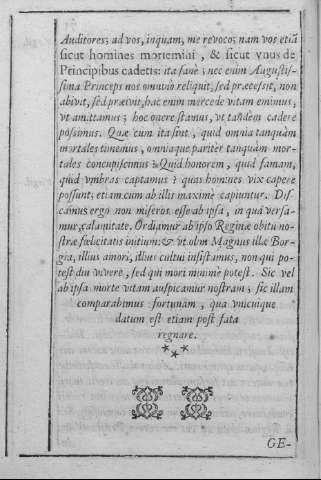 Auditores; ad vos, inquam, me revoco; nam vos etiã
sicut homines moriemini, & sicut vnus de
Principibus cadetis: ita sanè; nec enim Augustis-
sima Princeps nos omnino reliquit, sed præcesit, non
abivit, sed præivit, hac enim mercede vitam emimus,
vt amittamus; hoc onere stamus, vt tandem cadere
possimus. Quæ cum ita sint, quid omnia tanquàm
mortales timemus, omniaque pariter tanquàm mor-
tales concupiscimus? Quid honorem, quid famam,
quid vmbras captamus? quas homines vix capere
possunt, etiam cum ab illis maximè capiuntur. Dis-
camus ergo non miseros esse ab ipsa, in quâ versa-
mur, calamitate. Ordiamur ab ipso Reginæ obitu no-
stræ fœlicitatis initium: & vt olim Magnus ille Bor-
gia, illius amori, illius cultui insistamus, non qui po-
test diu vivere, sed qui mori minimè potest. Sic vel
ab ipsa morte vitam auspicamur nostram; sic illam
comparabimus fortunam, qua vnicuique
datum est etiam post fata
regnare.
GE-